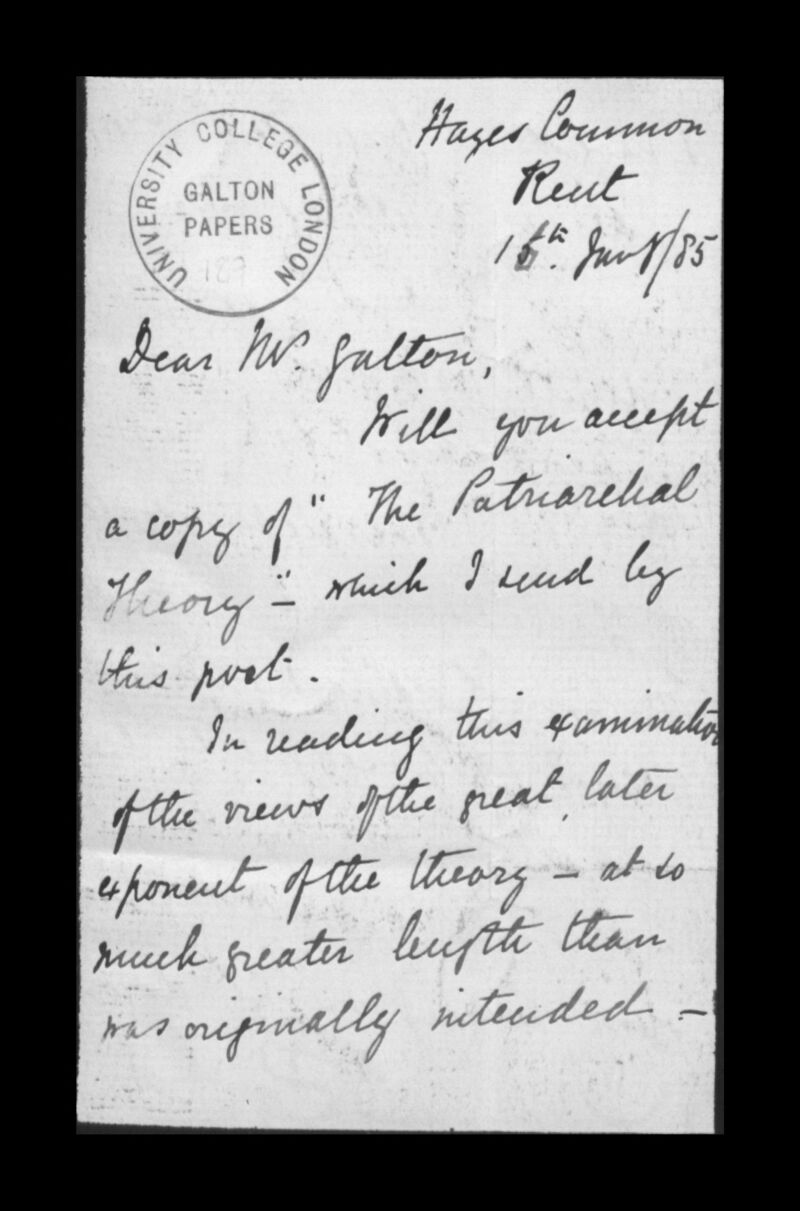 UNIVERSITY COLLEGE LONDON
GALTON
PAPERS
189
Hayes Common
Kent
15th. Jany/85
Dear Mr. Galton,
Will you accept
a copy of "The Patriarchal
Theory" – which I send by
this post.
In reading this examination
of the views of the great later
exponent of the theory – at so
much greater length than
was originally intended –